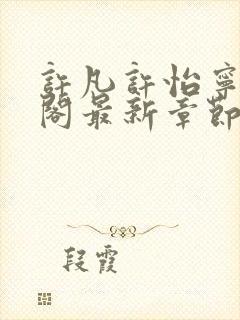 許凡許怡寧
閣最新章節
段霞